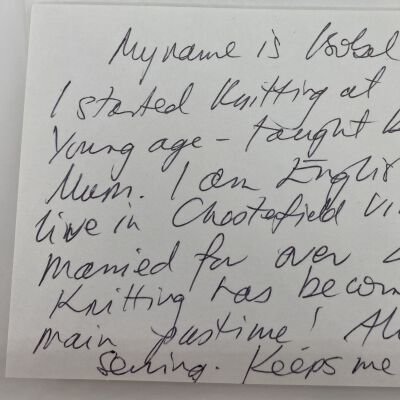 My name is
I started Knitting at
Young age - taught
Mum. I am Englis
live in Chesterfield Vi
married for over
Knitting has becom
main pastime! Al
sewing. Keeps me